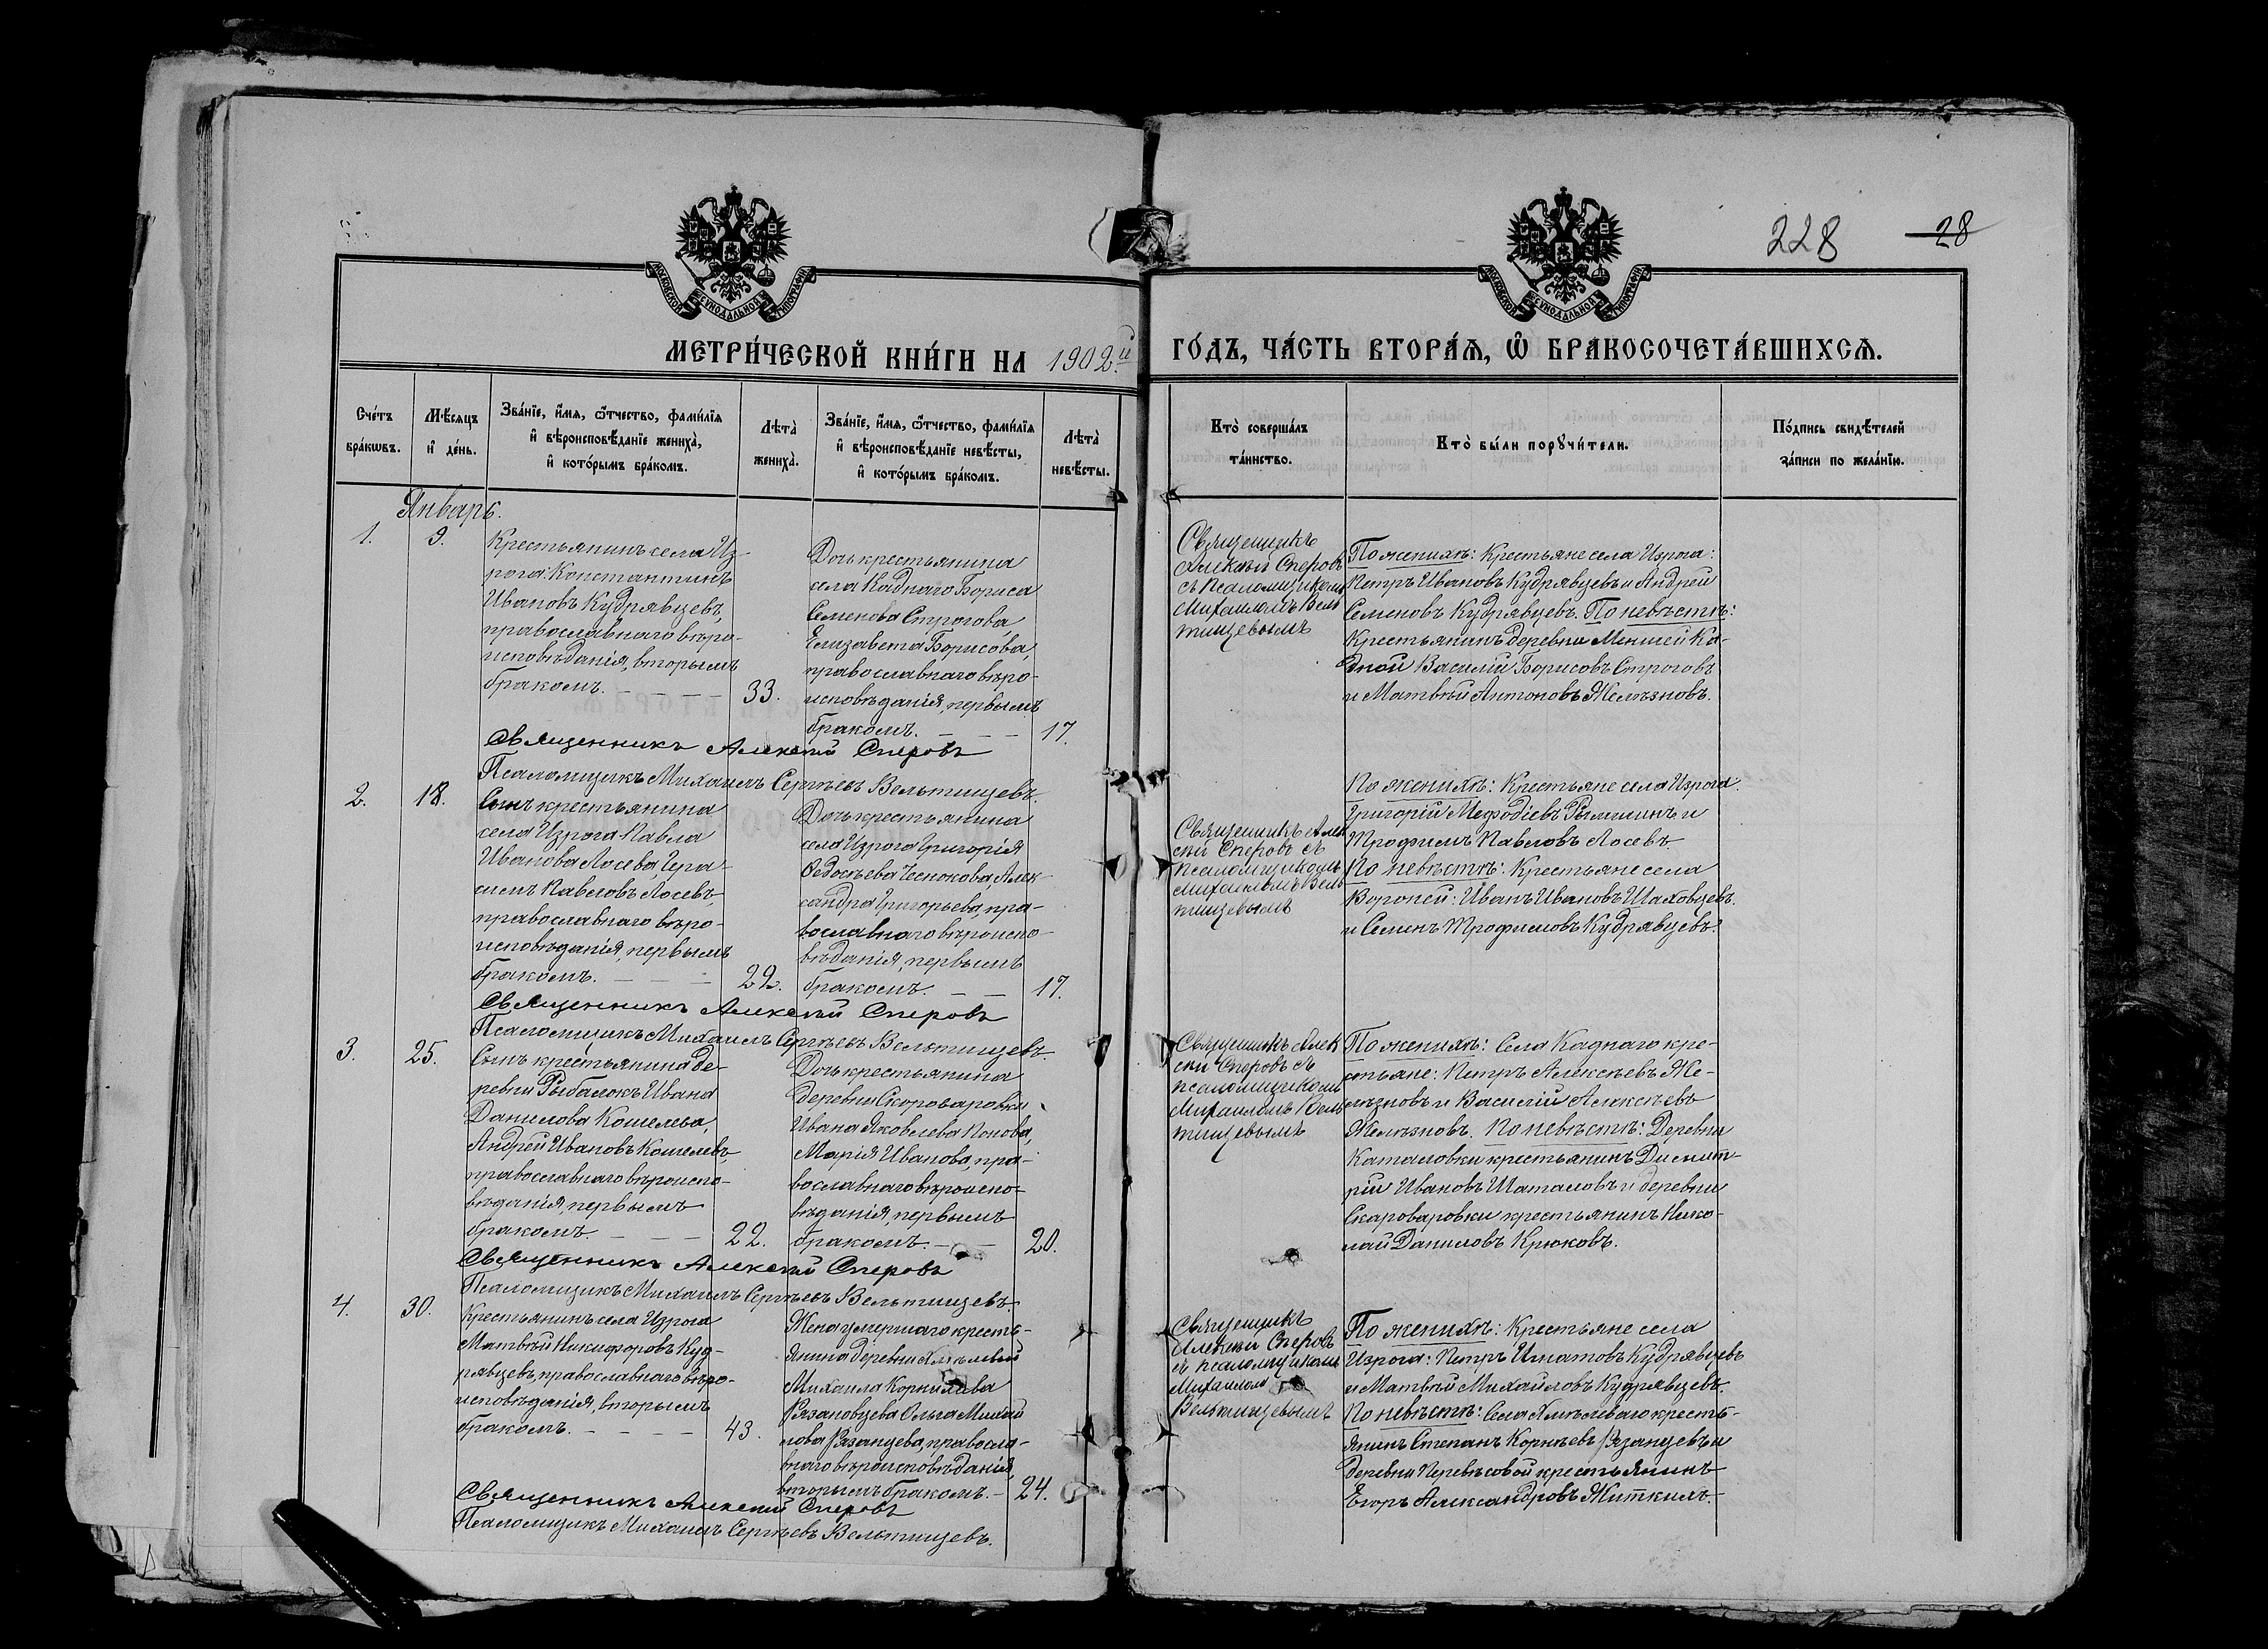 228 28
МОСКОВСКОЙ СѴНОДАЛЬНОЙ ТИПОГРАФІИ
МОСКОВСКОЙ СѴНОДАЛЬНОЙ ТИПОГРАФІИ
МЕТРИ́ЧЕСКОЙ КНИ́ГИ НА 1902й ГО́ДЪ, ЧА́СТЬ ВТОРА́Я, Ѡ҆ БРАКОСОЧЕТА́ВШИХСЯ.
Сче́тъ
бра́кѡвъ.
Мѣ́сяцъ
и҆ де́нь.
Зва́нїе, и҆́мя, ѻ҆́тчество, фами́лїя
и҆ вѣроисповѣ́данїе жениха̀,
и҆ кото́рымъ бра́комъ.
Лѣта̀
жениха̀.
Зва́нїе, и҆́мя, ѻ҆́тчество, фами́лїя
и҆ вѣроисповѣ́данїе невѣ́сты,
и҆ кото́рымъ бра́комъ.
Лѣта̀
невѣ́сты.
Кто̀ соверша́лъ
та́инство.
Кто̀ бы́ли порꙋчи́тели.
По́дпись свидѣ́телей
за́писи по жела́нїю.
Январь.
1.
9.
Крестьянинъ села Из-
рога Константинъ
Ивановъ Кудрявцевъ,
православнаго вѣро-
исповѣданія, вторымъ
бракомъ.
33.
Дочь крестьянина
села Каднаго Бориса
Семенова Строгова,
Елизавета Борисова,
православнаго вѣро-
исповѣданія, первымъ
бракомъ.
17.
Священникъ
Алексѣй Сперовъ
съ псаломщикомъ
Михаиломъ Вель
тищевымъ
По женихѣ: Крестьяне села Изрога:
Петръ Ивановъ Кудрявцевъ и Андрей
Семеновъ Кудрявцевъ. По невѣстѣ:
Крестьянинъ деревни Меншей Ка-
дной Василій Борисовъ Строговъ
и Матвѣй Антоновъ Желѣзновъ.
Священникъ Алексѣй Сперовъ
Псаломщикъ Михаилъ Сергѣевъ Вельтищевъ.
2.
18.
Сынъ крестьянина
села Изрога Павла
Иванова Лосева, Гера-
симъ Павловъ Лосевъ,
православнаго вѣро-
исповѣданія, первымъ
бракомъ.
22.
Дочь крестьянина
села Изрога Григорія
Федосѣева Чеснокова, Алек-
сандра Григорьева, пра-
вославнаго вѣроиспо-
вѣданія, первымъ
бракомъ.
17.
Священникъ Алек
сѣй Сперовъ съ
псаломщикомъ
Михаиломъ Вель
тищевымъ
По женихѣ: Крестьяне села Изрога
Григорій Мефодіевъ и
Трофимъ Павловъ Лосевъ.
По невѣстѣ: Крестьяне села
Вороней: Иванъ Ивановъ Шаховцевъ
и Семенъ Трофимовъ Кудрявцевъ.
Священникъ Алексѣй Сперовъ
Псаломщикъ Михаилъ Сергѣевъ Вельтищевъ.
3.
25.
Сынъ крестьянина де-
ревни Рыбалокъ Ивана
Данилова Кошелева,
Андрей Ивановъ Кошелевъ,
православнаго вѣроиспо-
вѣданія, первымъ
бракомъ.
22.
Дочь крестьянина
деревни Скороваровки
Ивана Яковлева Попова,
Марія Иванова, пра-
вославнаго вѣроиспо-
вѣданія, первымъ
бракомъ.
20.
Священникъ Алек
сѣй Сперовъ съ
псаломщикомъ
Михаиломъ Вель
тищевымъ
По женихѣ: Села Каднаго кре-
стьяне: Петръ Алексѣевъ Же-
лѣзновъ и Василій Алексѣевъ
Желѣзновъ. По невѣстѣ: Деревни
Каталовки крестьянинъ Димит-
рій Ивановъ Шаталовъ и деревни
Скароваровки крестьянинъ Нико-
лай Даниловъ Крюковъ.
Священникъ Алексѣй Сперовъ
Псаломщикъ Михаилъ Сергѣевъ Вельтищевъ.
4.
30.
Крестьянинъ села Изрога
Матвѣй Никифоровъ Куд-
рявцевъ, православнаго вѣро-
исповѣданія, вторымъ
бракомъ.
43.
Жена умершаго кресть-
янина деревни Хмѣлевой
Михаила Корнилева
Рязановцева Ольга Михай
лова Рязанцева, правосла-
внаго вѣроисповѣданія,
вторымъ бракомъ.
24.
Священникъ
Алексѣй Сперовъ
съ псаломщикомъ
Михаиломъ
Вельтищевымъ
По женихѣ: Крестьяне села
Изрога: Петръ Игнатовъ Кудрявцевъ
и Матвѣй Михайловъ Кудрявцевъ.
По невѣстѣ: Села Хмѣлеваго кресть-
янинъ Степанъ Корнѣевъ Рязанцевъ и
деревни Перевѣсовой крестьянинъ
Егоръ Александровъ Житкилъ.
Священникъ Алексѣй Сперовъ
Псаломщикъ Михаилъ Сергѣевъ Вельтищевъ.